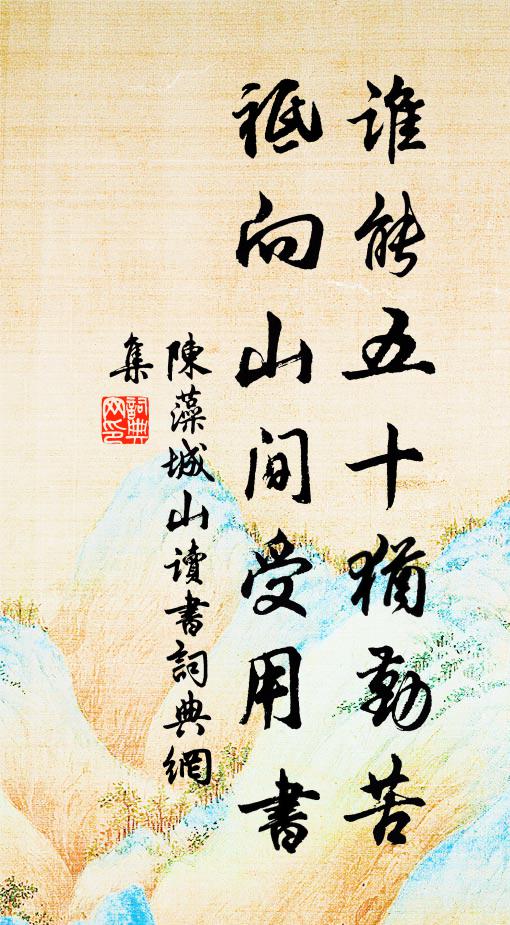 誰能五十猶勤苦
祗向山間受用書
陳藻城山讀書詞典網
集
詞典
网印